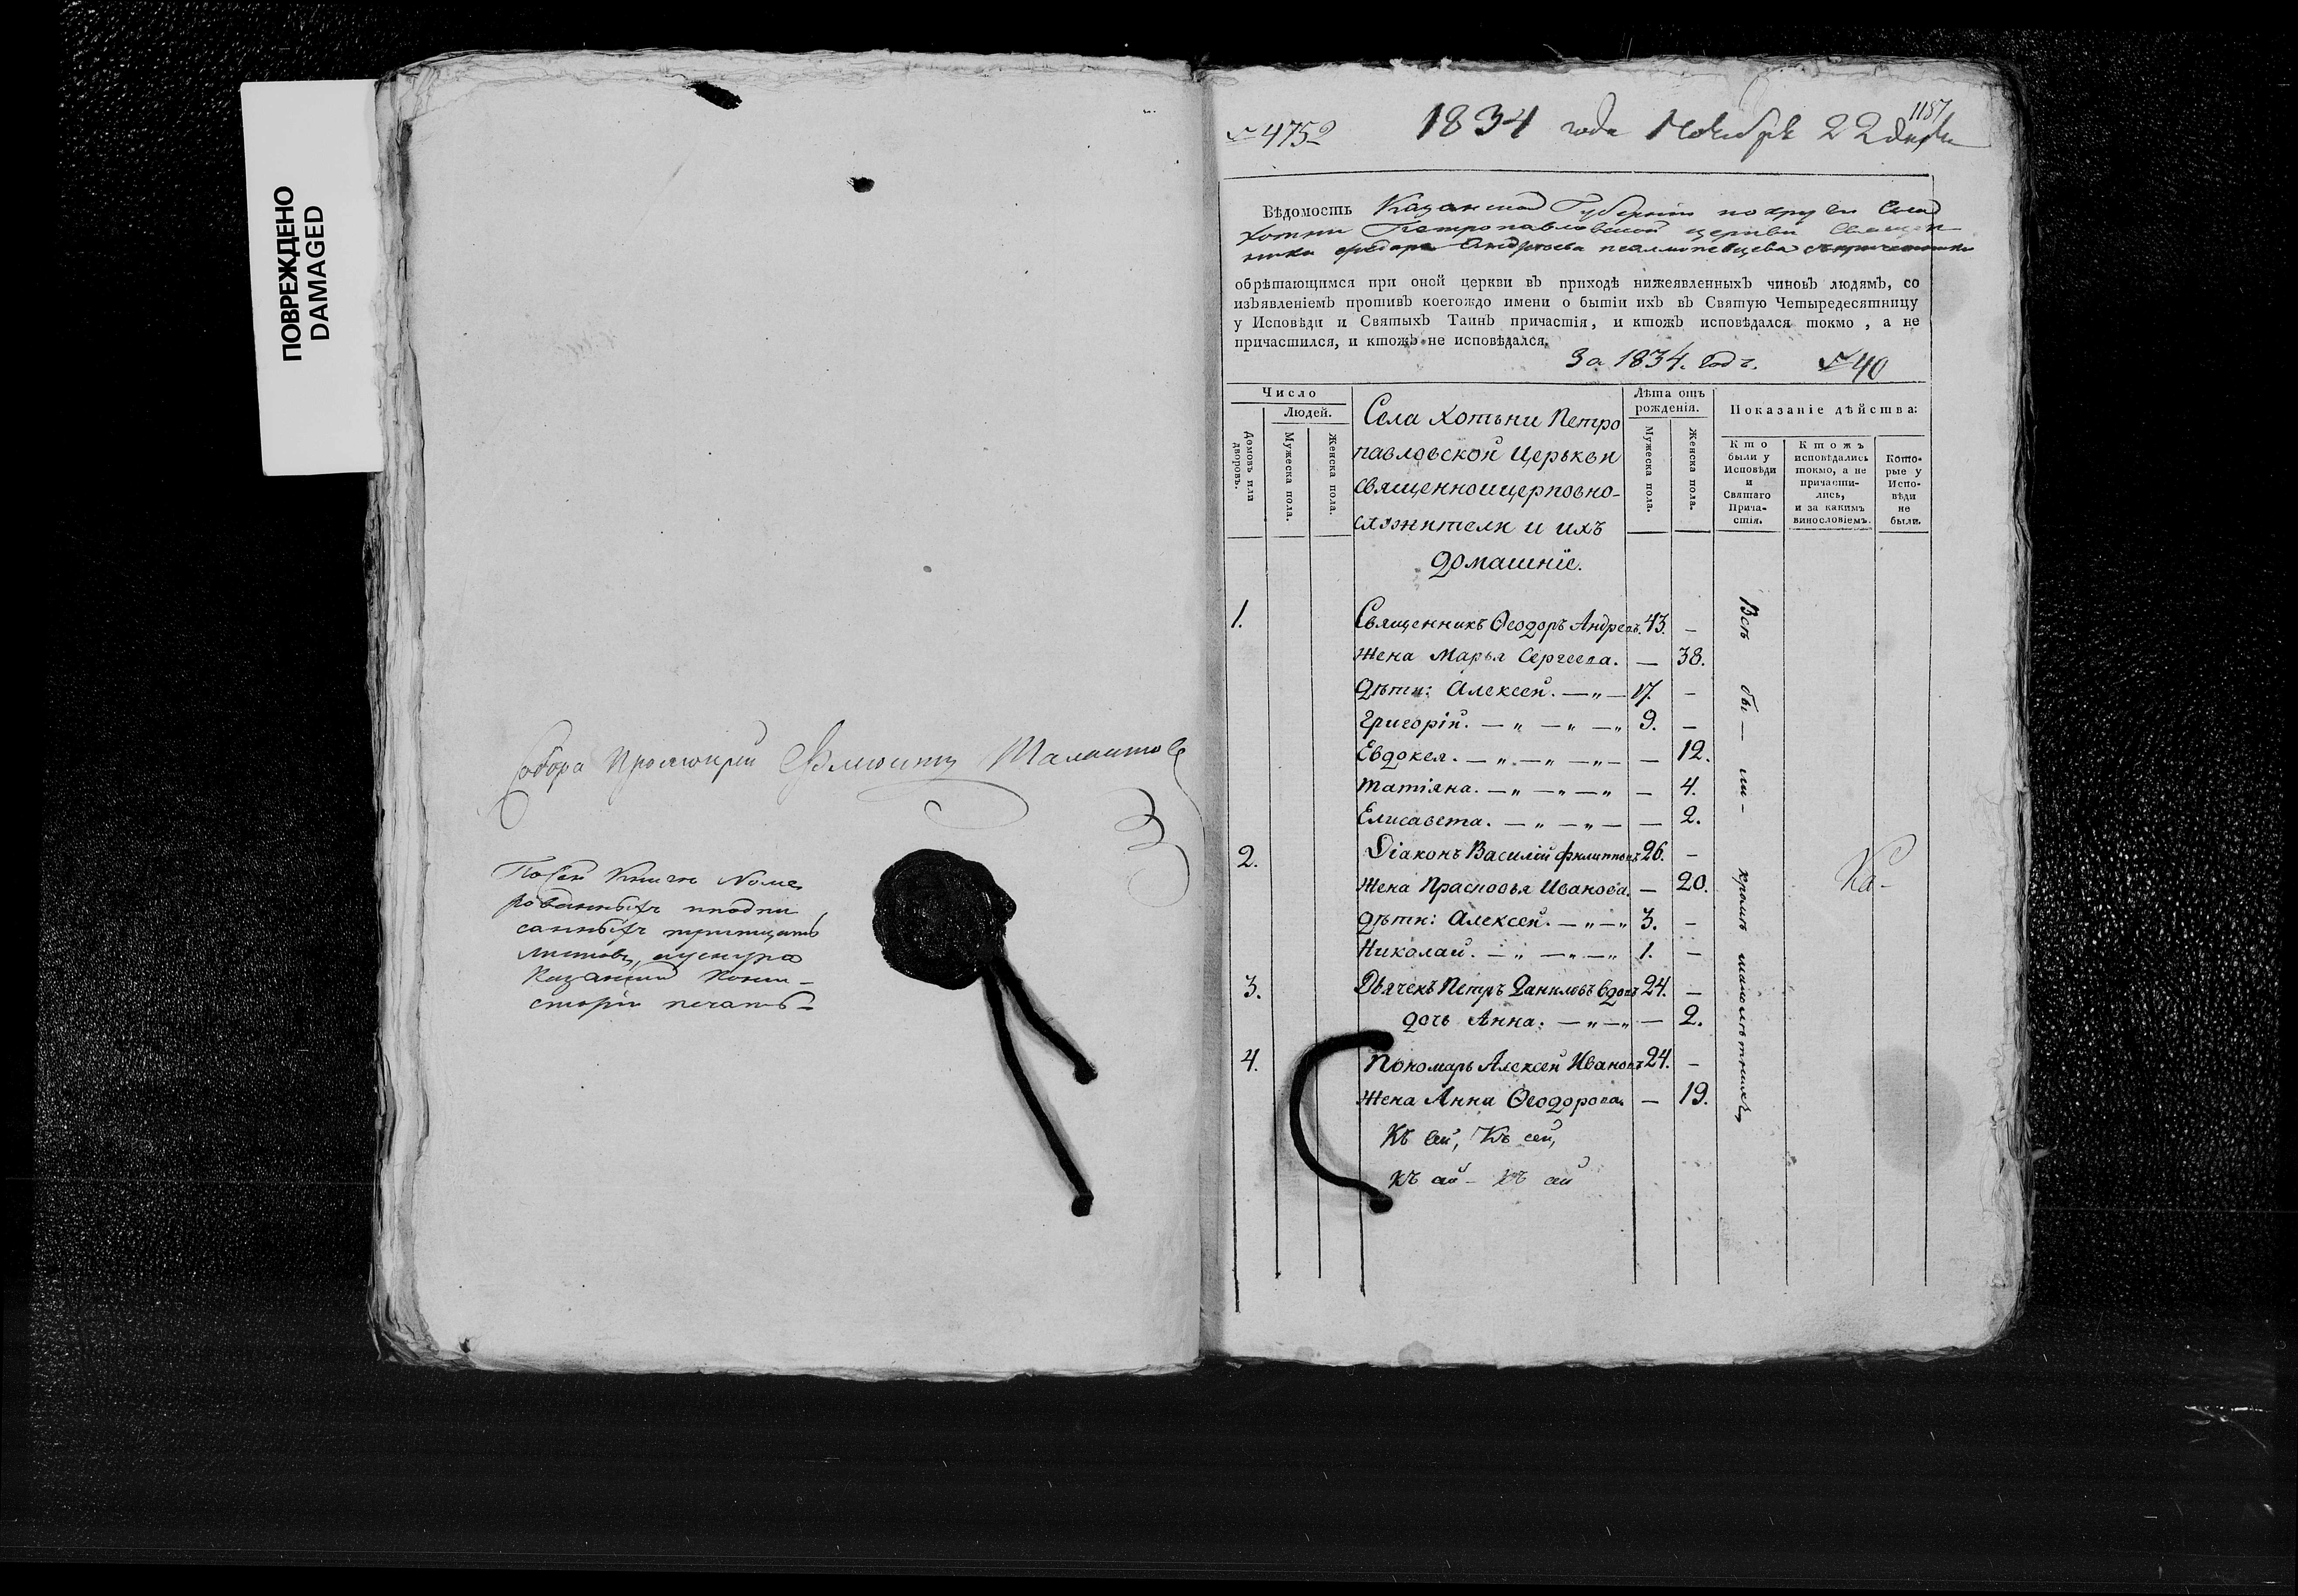 ПОВРЕЖДЕНО
DAMAGED
Собора Протоиерей
По сей книги Номе
рованныхъ и подпи
санныхъ тритцать
листовъ,
Казанской Конси-
сторіи печать
1187
№ 4752 1834 года Ноября 22 дня
Вѣдомость Казанской Губерніи по округи Села
Хотни Петропавловской церкви Священ
ника Федора Андреева псалмопевцева съ причетники
обрѣтающимся при оной церкви въ приходѣ нижеявленныхъ чиновъ людямъ, со
изъявленіемъ противъ коегождо имени о бытіи ихъ въ Святую Четыредесятницу
у Исповѣди и Святыхъ Таинъ причастія, и ктожъ исповѣдался токмо, а не
причастился, и ктожъ не исповѣдался.
За 1834. годъ. № 40
Число
Людей.
Домовъ или дворовъ.
Мужеска пола.
Женска пола.
Села Хотьни Петро
павловской Церькви
священно и церковно-
служители и ихъ
домашніе.
Лѣта отъ
рожденія.
Мужеска пола.
Женска пола.
Показаніе дѣйства:
Кто
были у
Исповѣди
и
Святаго
Прича-
стія.
Ктожъ
исповѣдались
токмо, а не
причасти-
лись,
и за какимъ
винословіемъ.
Кото-
рые у
Испо-
вѣди
не
были.
1. Священникъ Ѳеодоръ Андреевъ. 43. —
Жена Марья Сергеева. — 38.
Дѣти: Алексей. — „ — 17. —
Григорій. — „ — „ — „ 9. —
Евдокея. — „ — „ — „ — — 12.
Татіяна. — „ — „ — „ — 4.
Елисавета. — „ — „ — — 2.
2. Діаконъ Василій Филиповъ 26. —
Жена Прасковья Иванова. — 20.
Дѣти: Алексей. — „ — „ 3. —
Николай. — „ — „ — „ 1. —
3. Дьячекъ Петръ Даниловъ вдовъ 24. —
дочь Анна. — „ — „ — 2.
4. Пономарь Алексей Ивановъ 24. —
Жена Анна Ѳеодорова. — 19.
Всѣ бы — ли — кромѣ малолѣтнихъ
Ка-